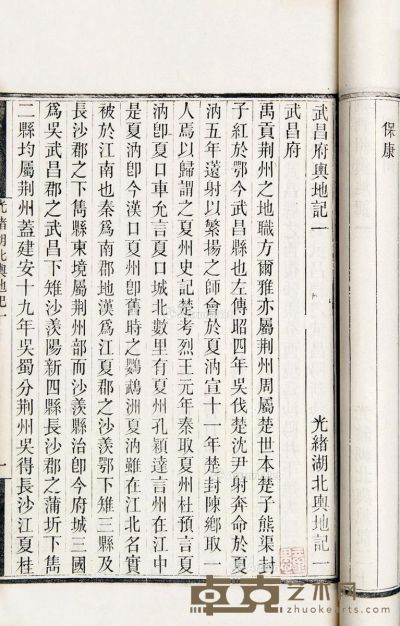 保康
武昌府輿地記一 光緒湖北輿地記一
武昌府
禹貢荆州之地職方爾雅亦屬荆州周屬楚世本楚子熊渠封
子紅於鄂今武昌縣也左傳昭四年吳伐楚沈尹射奔命於夏
汭五年薳射以繁揚之師會於夏汭宣十一年楚封陳鄉取一
人焉以歸謂之夏州史記楚考烈王元年秦取夏州杜預言夏
汭卽夏口車允言夏口城北數里有夏州孔穎達言州在江中
是夏汭卽今漢口夏州卽舊時之鸚鵡洲夏汭雖在江北名實
被於江南也秦爲南郡地漢爲江夏郡之沙羡鄂下雉三縣及
長沙郡之下雋縣東境屬荆州部而沙羡縣治卽今府城三國
爲吳武昌郡之武昌下雉沙羡陽新四縣長沙郡之蒲圻下雋
二縣均屬荆州蓋建安十九年吳蜀分荆州吳得長沙江夏桂
光緒湖北輿地記一 一
卓克艺术网
zhuokearts.com